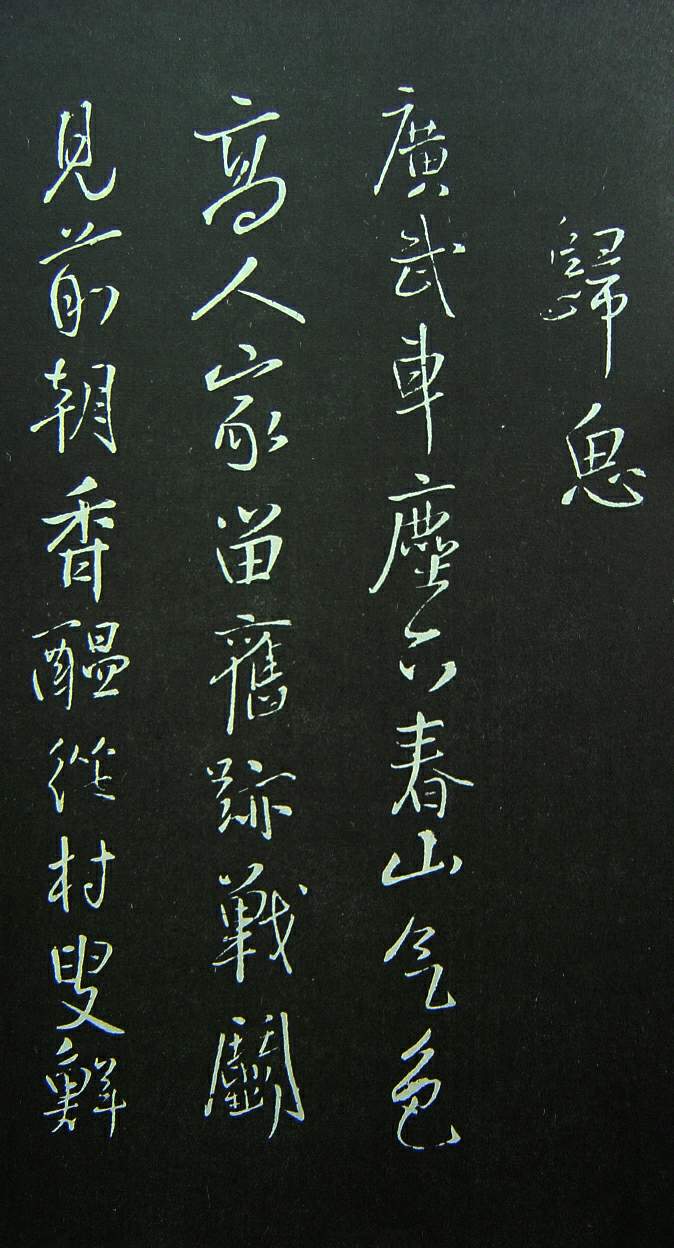 歸思
廣武車塵六春山气色
高人家留舊跡戰鬭
見前朝香醞從村叟鮮